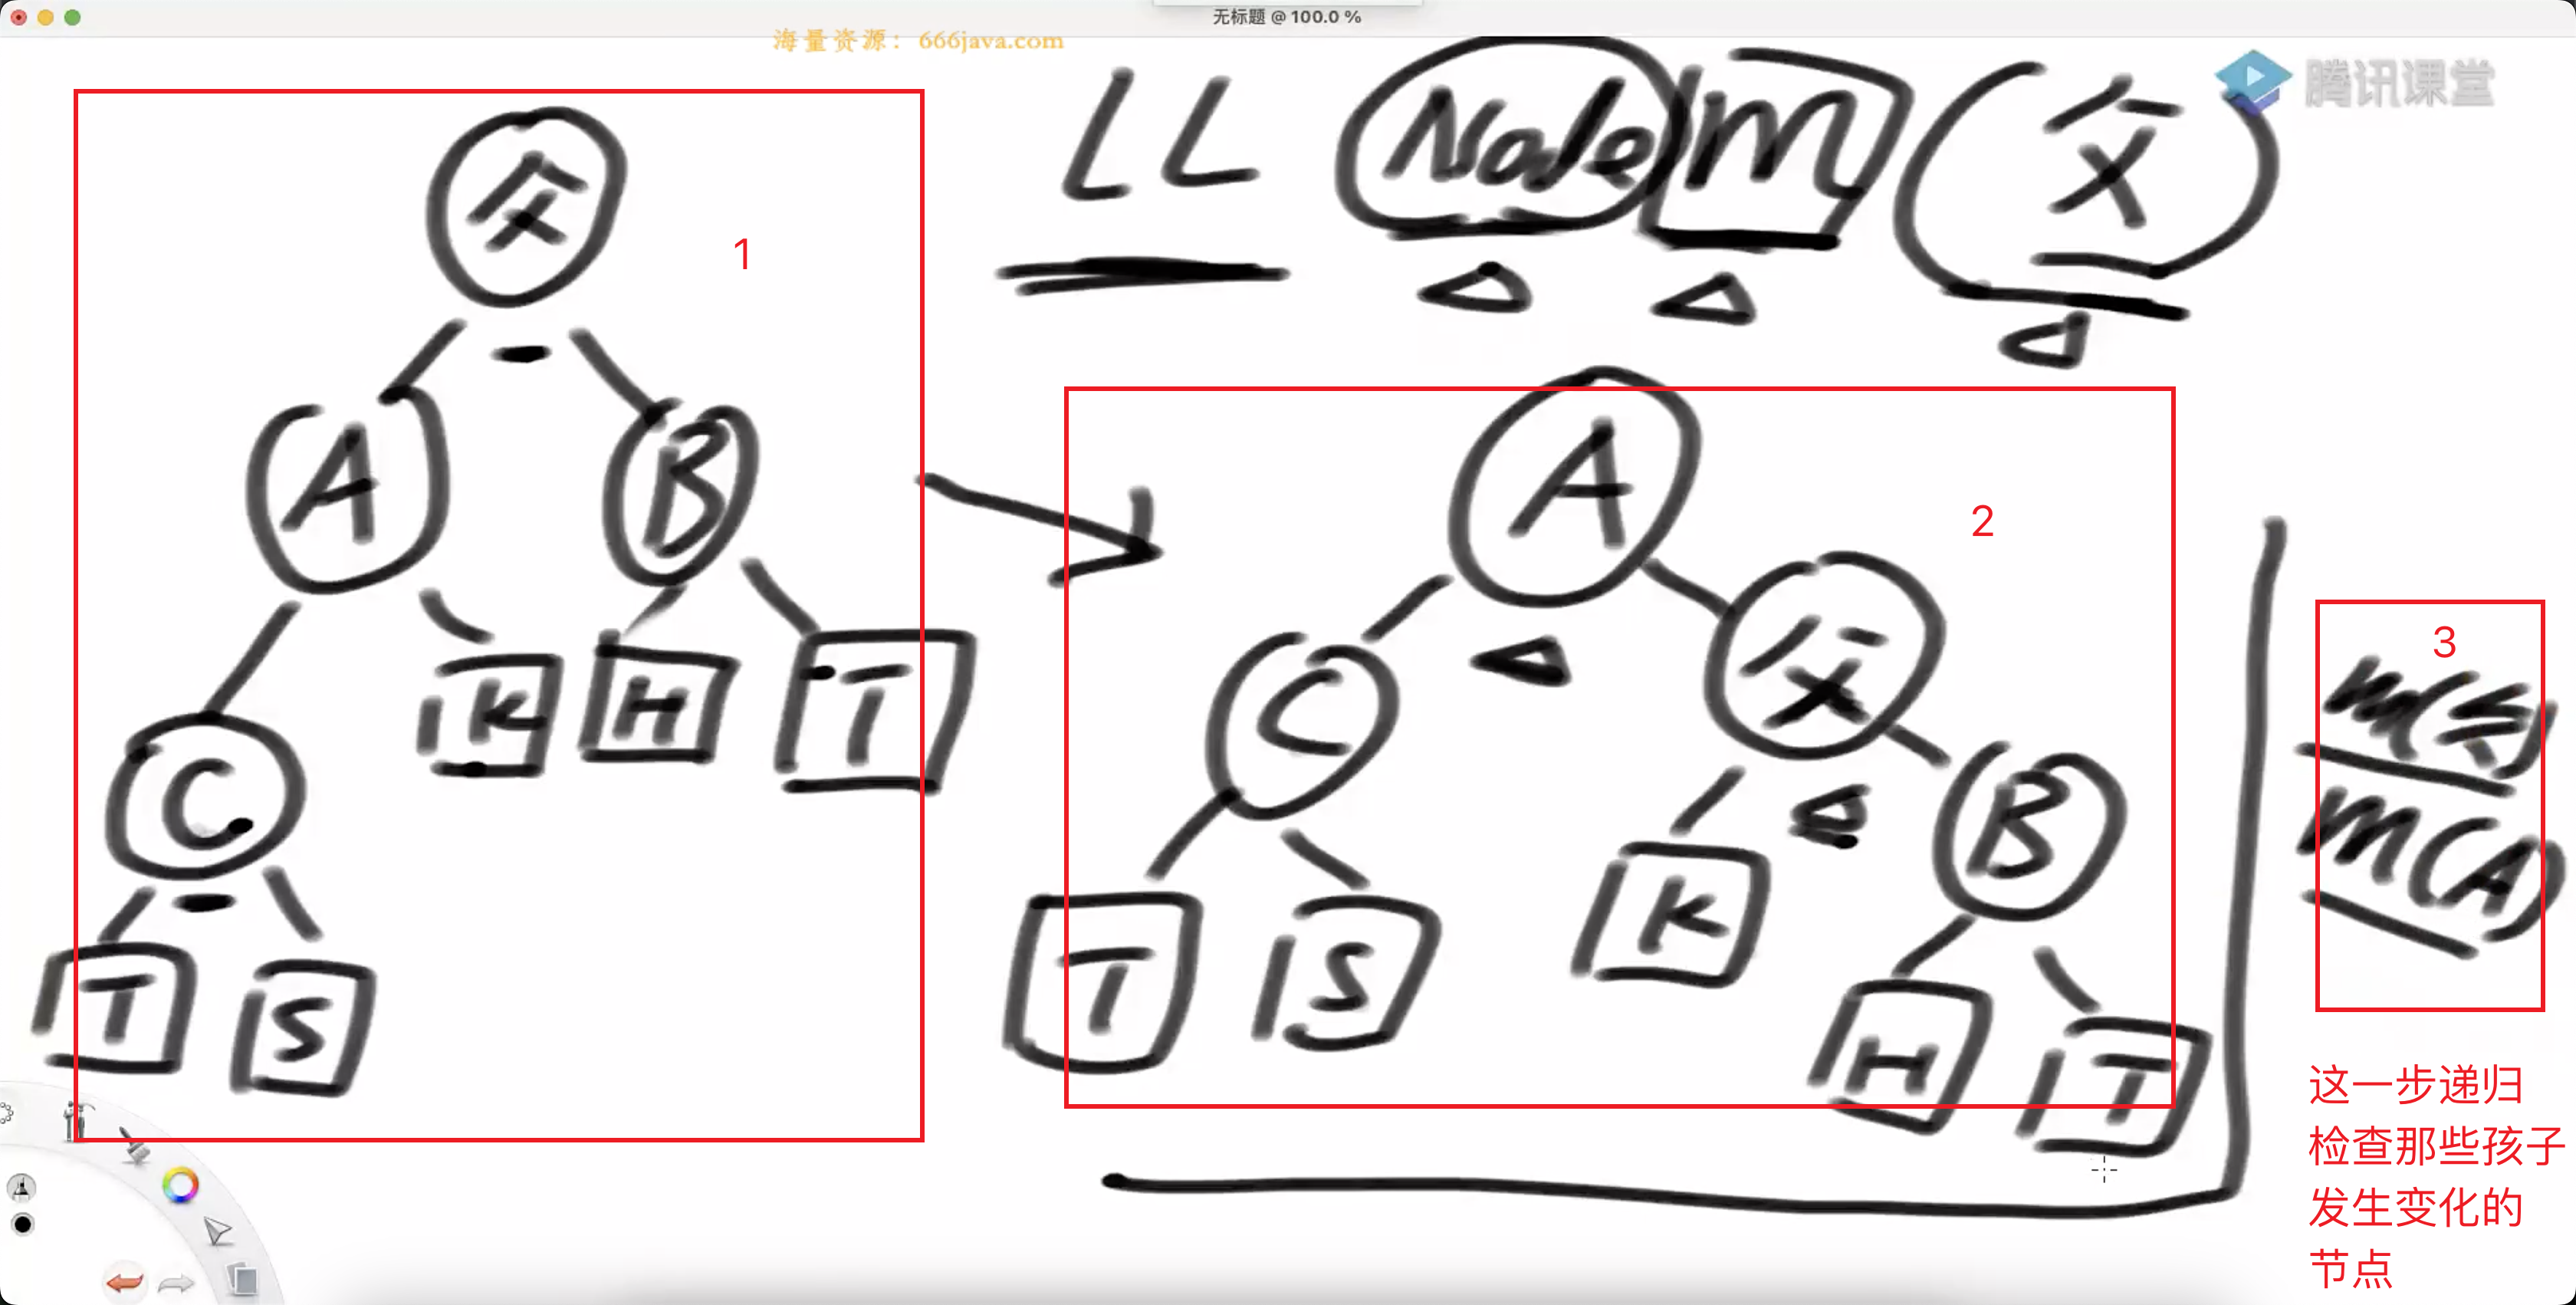 无标题 @ 100.0 %
海量资源：666java.com
腾讯课堂
LL Node m 父
父
1
A B
C K H T
T S
A
2
C 父
T S K B
H T
3
m(父)
m(A)
这一步递归
检查那些孩子
发生变化的
节点